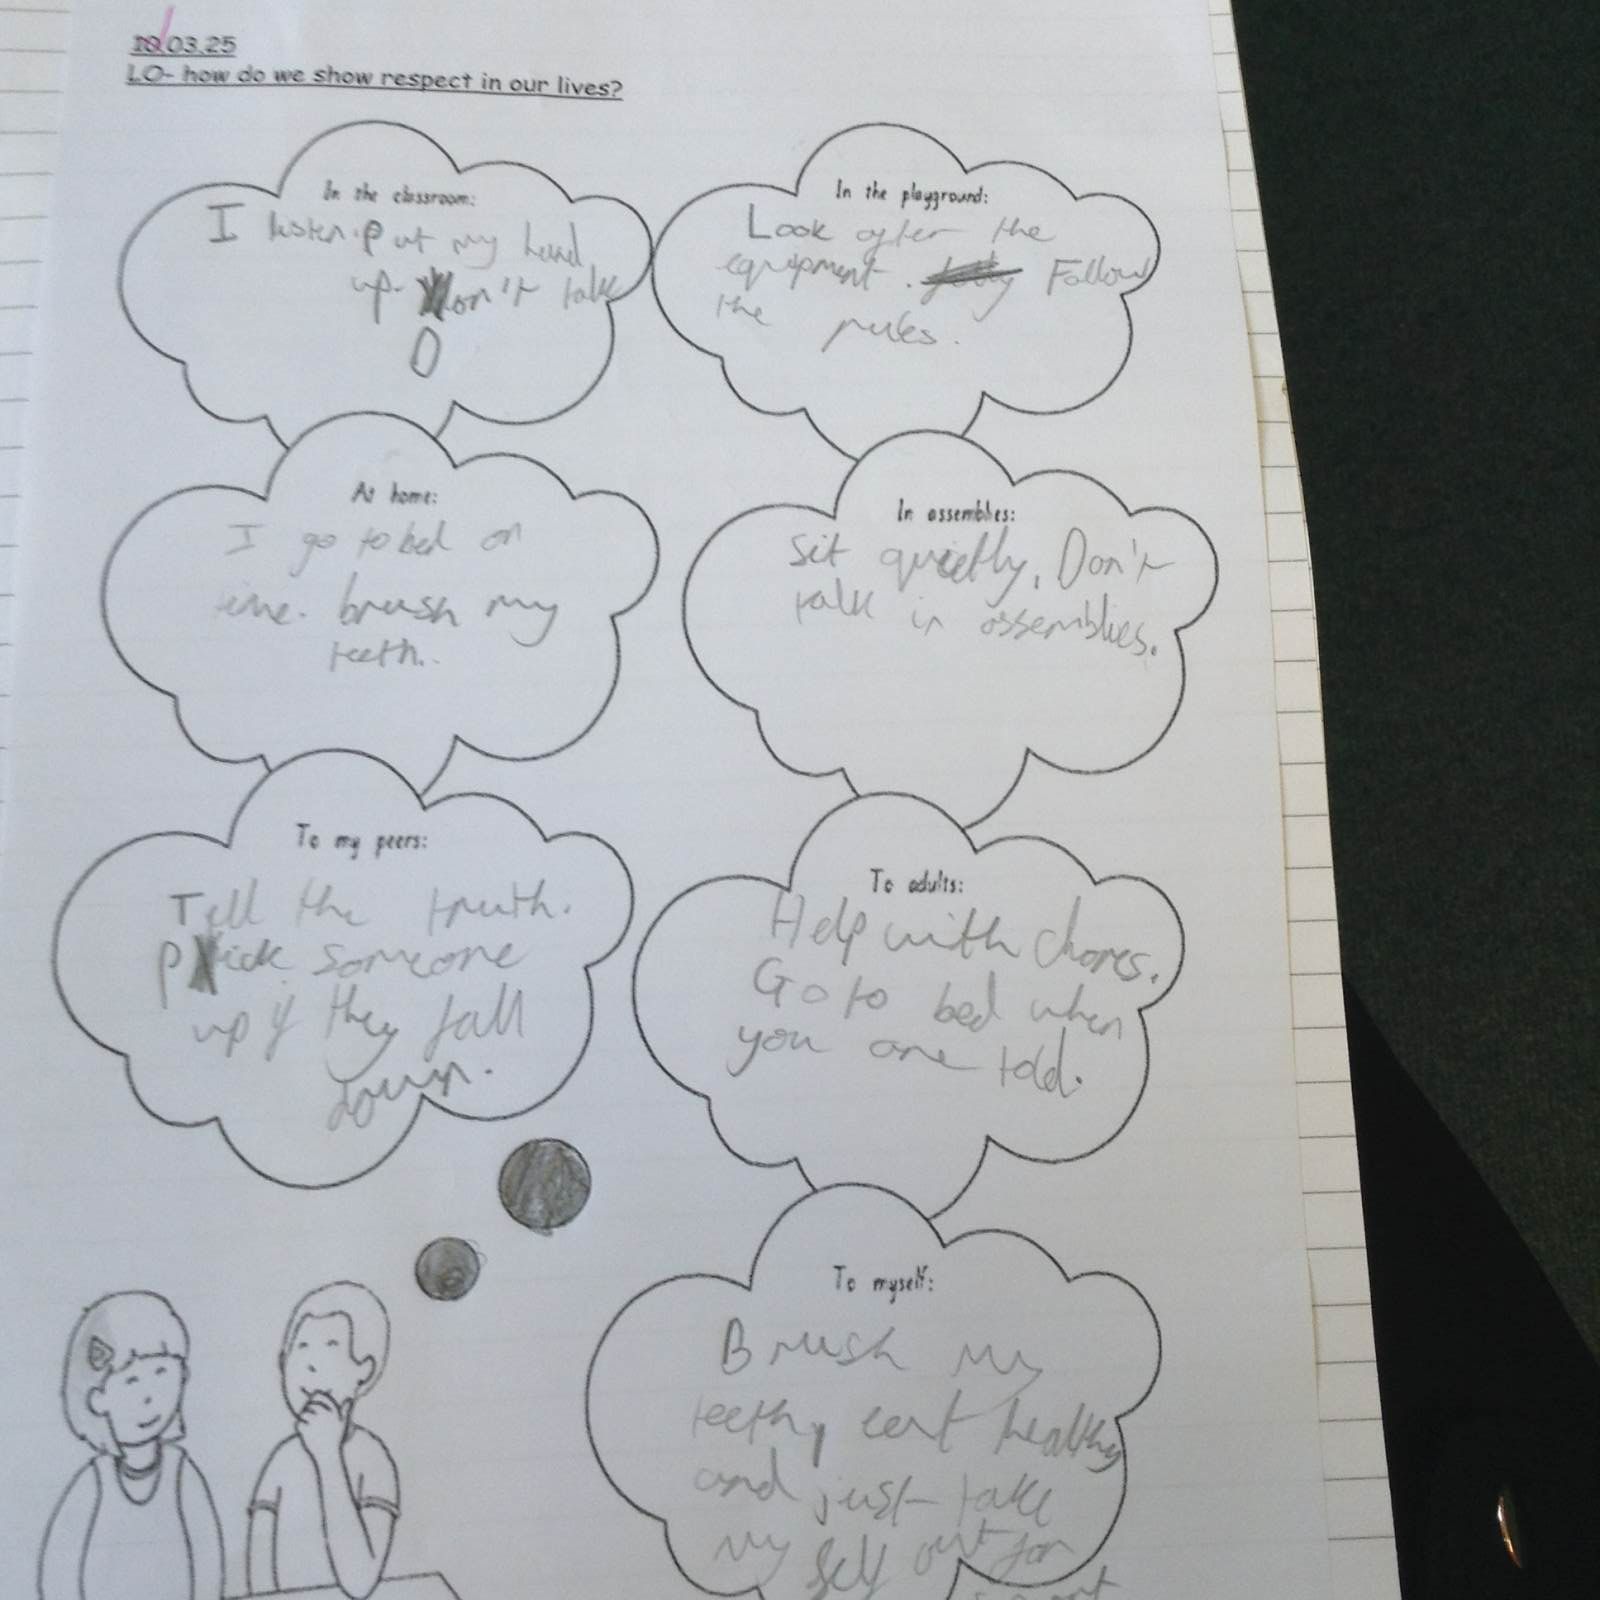 10.03.25
LO- how do we show respect in our lives?
In the classroom:
I listen. Put my hand
up. Don't talk
In the playground:
Look after the
equipment. Follow
the rules.
At home:
I go to bed on
time. brush my
teeth.
In assemblies:
Sit quietly, Don't
talk in assemblies.
To my peers:
Tell the truth.
Pick someone
up if they fall
down.
To adults:
Help with chores.
Go to bed when
you are told.
To myself:
Brush my
teeth, eat healthy
and just take
my self out for